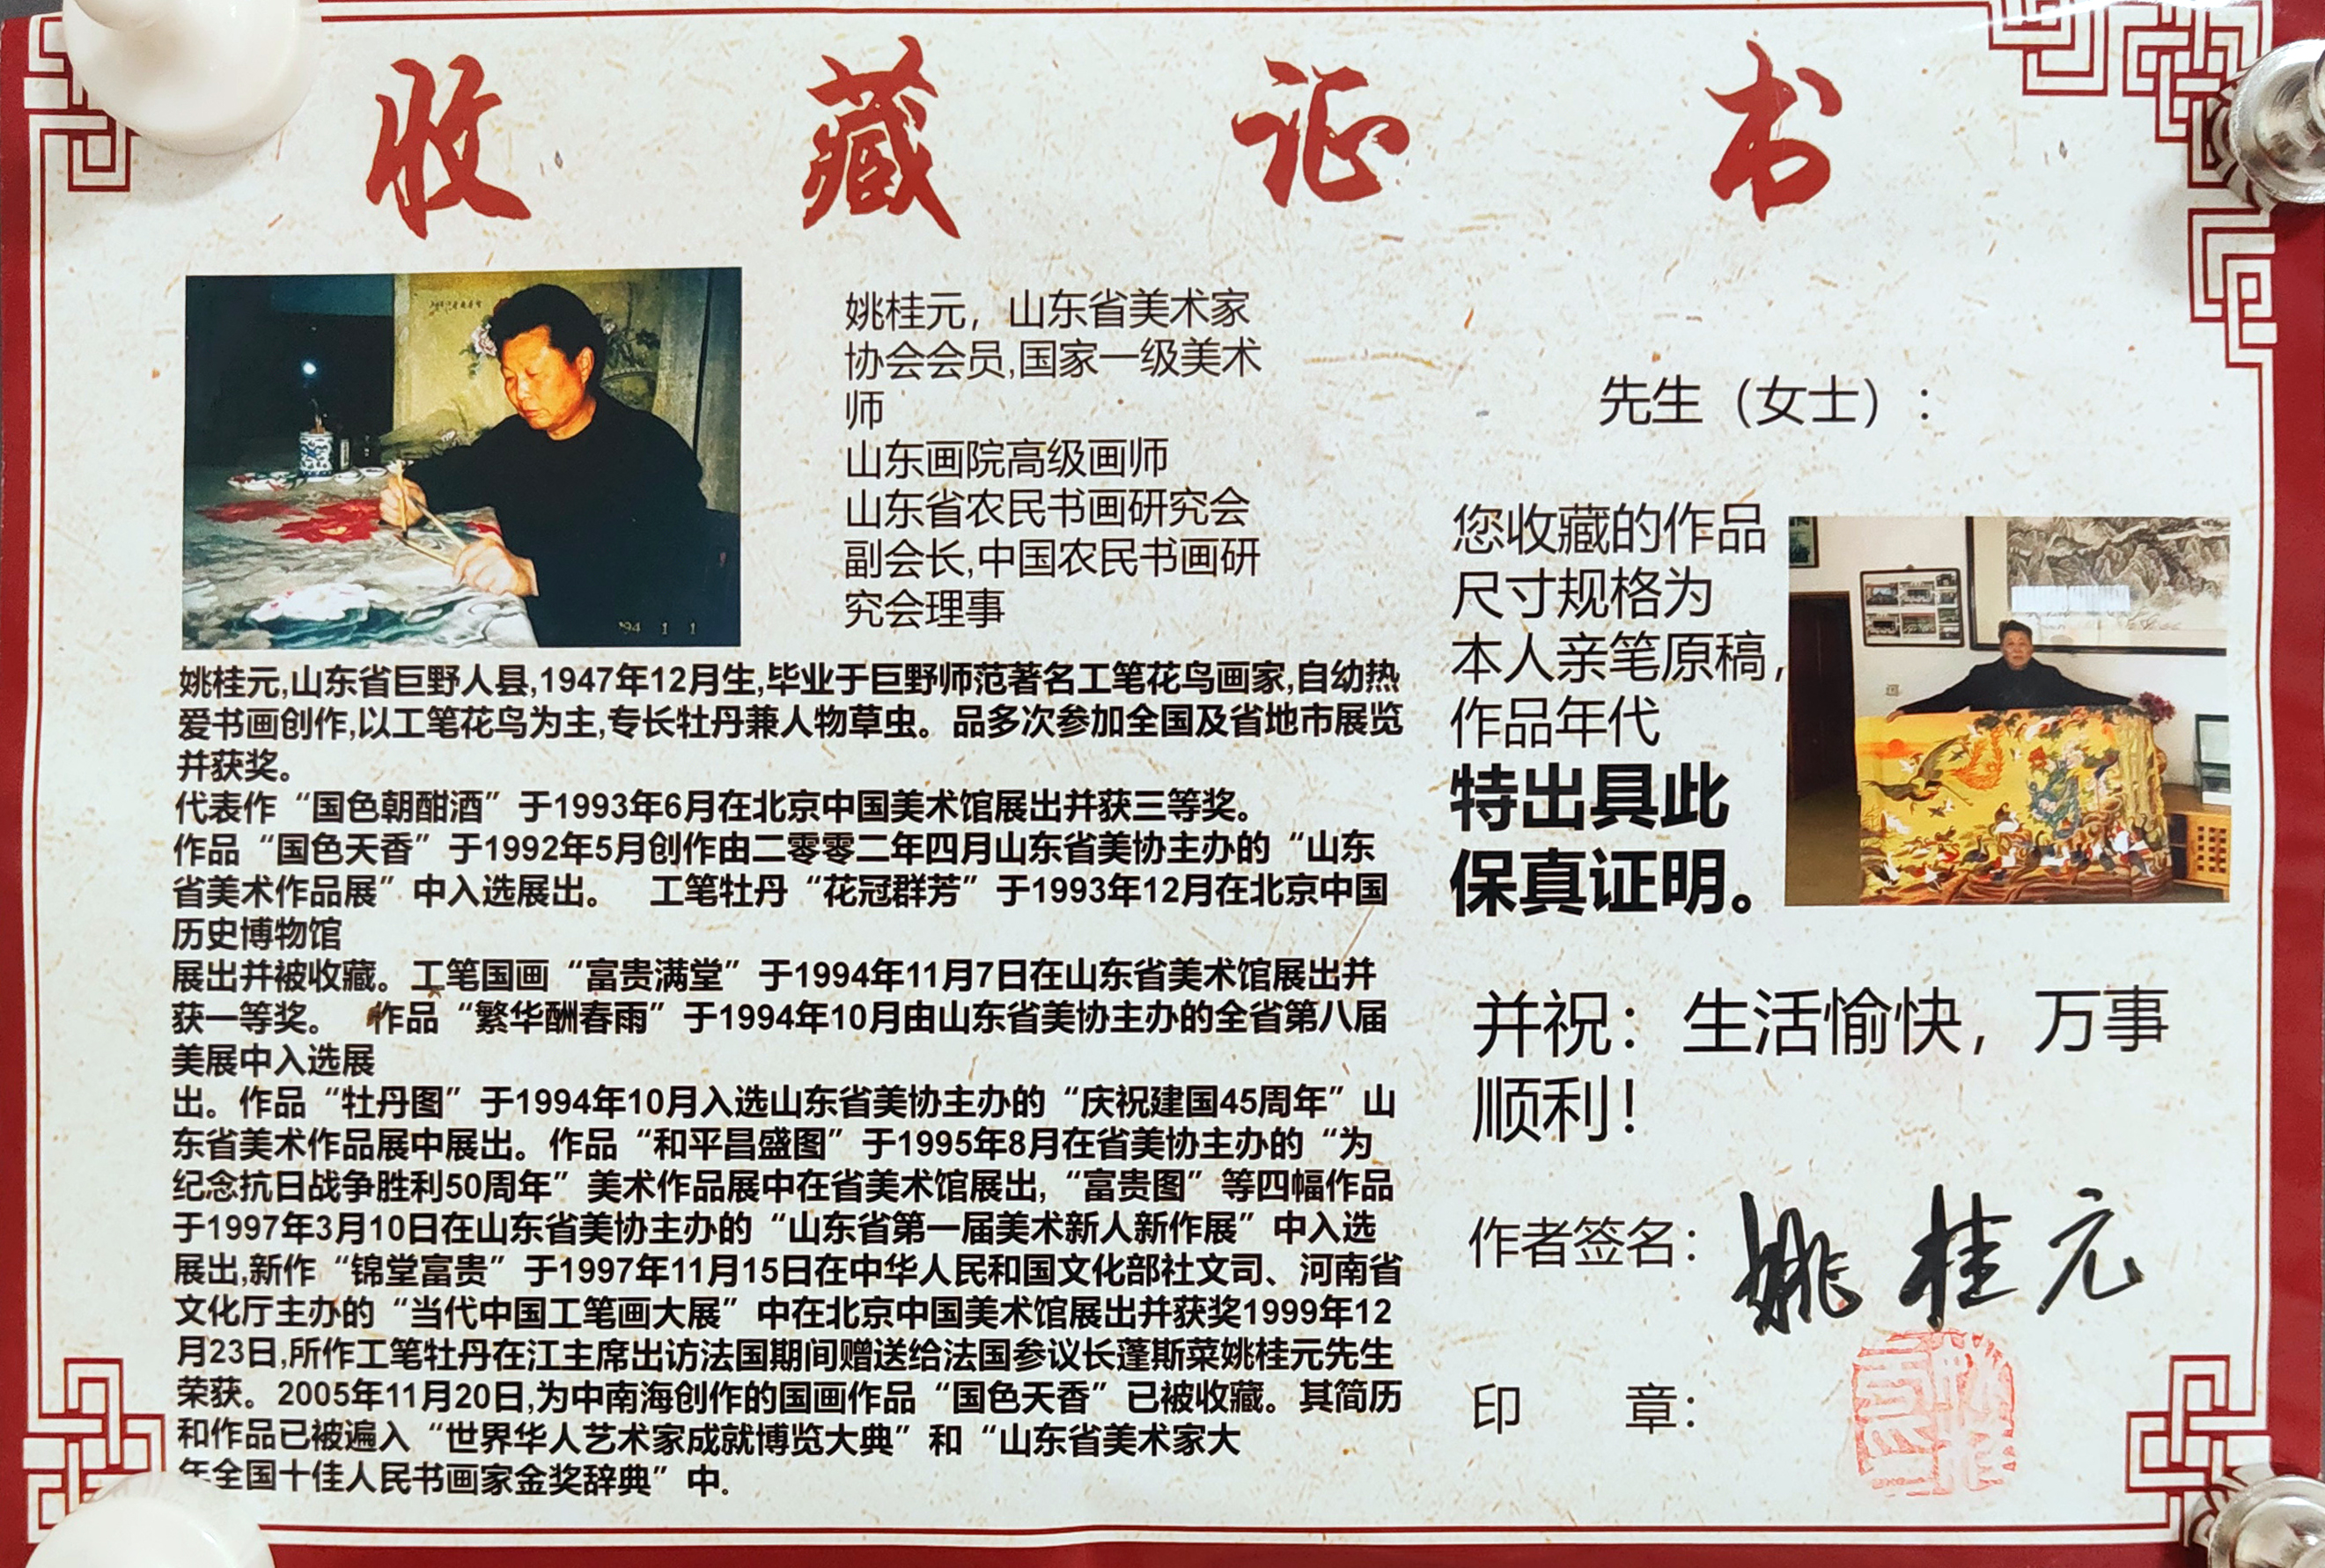 收藏证书
姚桂元，山东省美术家
协会会员,国家一级美术
师
山东画院高级画师
山东省农民书画研究会
副会长,中国农民书画研
究会理事
姚桂元,山东省巨野人县,1947年12月生,毕业于巨野师范著名工笔花鸟画家,自幼热
爱书画创作,以工笔花鸟为主,专长牡丹兼人物草虫。品多次参加全国及省地市展览
并获奖。
代表作“国色朝酣酒”于1993年6月在北京中国美术馆展出并获三等奖。
作品“国色天香”于1992年5月创作由二零零二年四月山东省美协主办的“山东
省美术作品展”中入选展出。 工笔牡丹“花冠群芳”于1993年12月在北京中国
历史博物馆
展出并被收藏。工笔国画“富贵满堂”于1994年11月7日在山东省美术馆展出并
获一等奖。 作品“繁华酬春雨”于1994年10月由山东省美协主办的全省第八届
美展中入选展
出。作品“牡丹图”于1994年10月入选山东省美协主办的“庆祝建国45周年”山
东省美术作品展中展出。作品“和平昌盛图”于1995年8月在省美协主办的“为
纪念抗日战争胜利50周年”美术作品展中在省美术馆展出,“富贵图”等四幅作品
于1997年3月10日在山东省美协主办的“山东省第一届美术新人新作展”中入选
展出,新作“锦堂富贵”于1997年11月15日在中华人民和国文化部社文司、河南省
文化厅主办的“当代中国工笔画大展”中在北京中国美术馆展出并获奖1999年12
月23日,所作工笔牡丹在江主席出访法国期间赠送给法国参议长蓬斯菜姚桂元先生
荣获。2005年11月20日,为中南海创作的国画作品“国色天香”已被收藏。其简历
和作品已被遍入“世界华人艺术家成就博览大典”和“山东省美术家大
年全国十佳人民书画家金奖辞典”中.
'94 1 1
先生（女士）：
您收藏的作品
尺寸规格为
本人亲笔原稿,
作品年代
特出具此
保真证明。
并祝：生活愉快，万事
顺利！
作者签名：姚桂元
印 章：